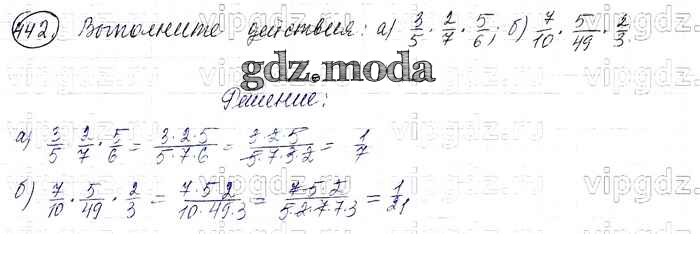 442. Выполните действия: а) 3/5 · 2/7 · 5/6; б) 7/10 · 5/49 · 2/3.
gdz.moda
Решение:
а) 3/5 · 2/7 · 5/6 = 3·2·5/5·7·6 = 3·2·5/5·7·3·2 = 1/7
б) 7/10 · 5/49 · 2/3 = 7·5·2/10·49·3 = 7·5·2/5·2·7·7·3 = 1/21
vipgdz.ru